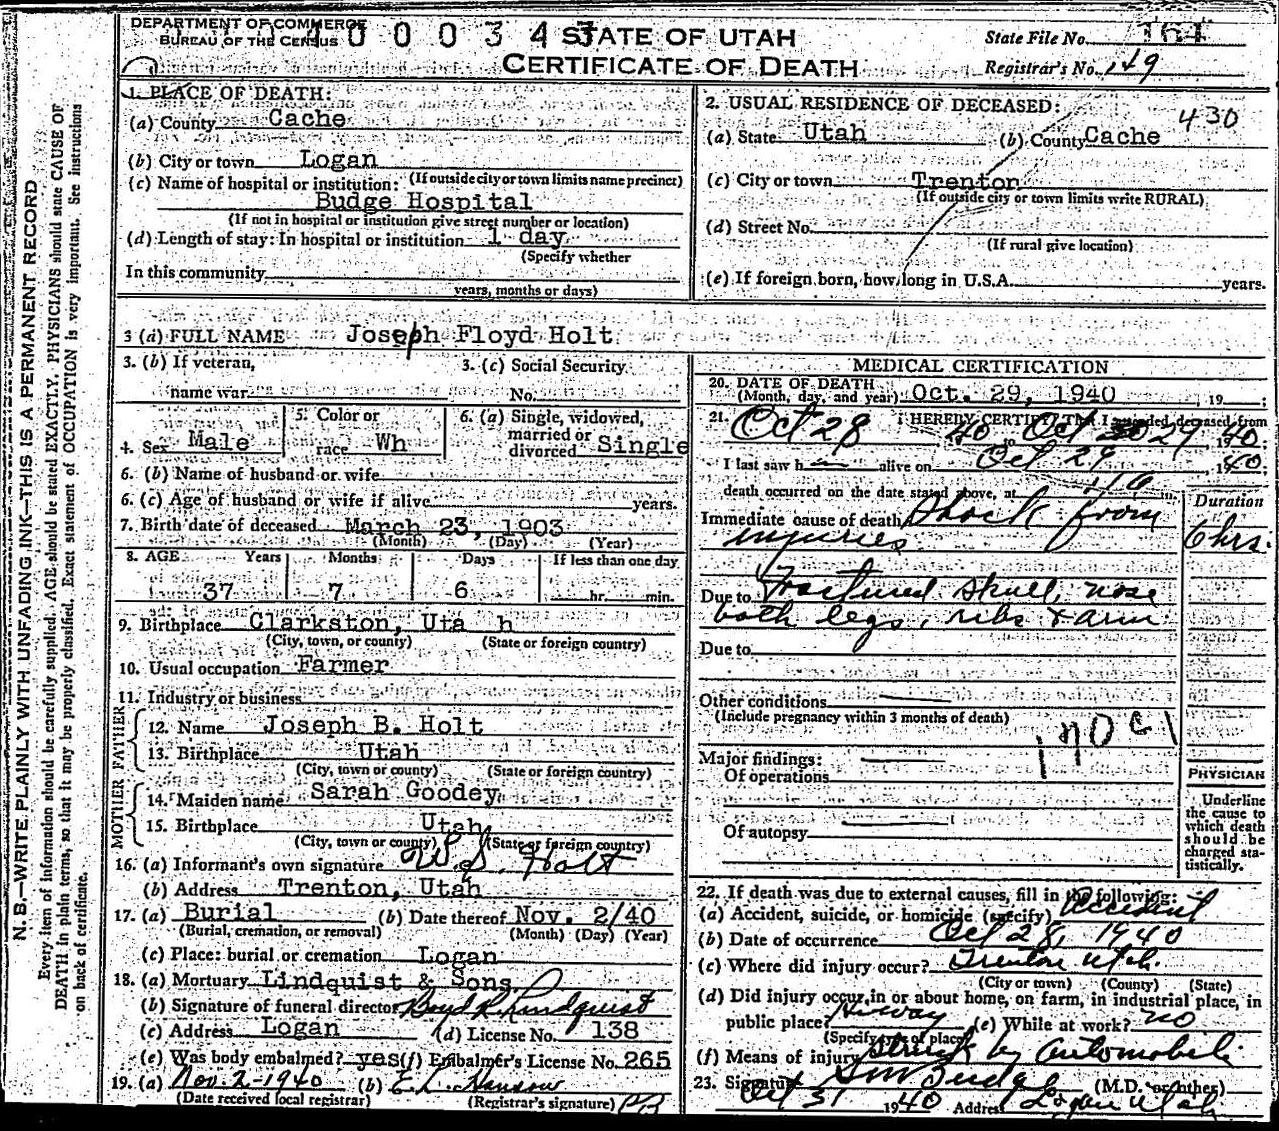 DEPARTMENT OF COMMERCE
BUREAU OF THE CENSUS
0 0 0 3 4 3
STATE OF UTAH
CERTIFICATE OF DEATH
State File No. 164
Registrar's No. 149
N. B.—WRITE PLAINLY WITH UNFADING INK—THIS IS A PERMANENT RECORD
Every item of information should be carefully supplied. AGE should be stated EXACTLY. PHYSICIANS should state CAUSE OF
DEATH in plain terms, so that it may be properly classified. Exact statement of OCCUPATION is very important. See instructions
on back of certificate.
1. PLACE OF DEATH:
(a) County Cache
(b) City or town Logan
(If outside city or town limits name precinct)
(c) Name of hospital or institution:
Budge Hospital
(If not in hospital or institution give street number or location)
(d) Length of stay: In hospital or institution 1 day
(Specify whether
In this community
years, months or days)
2. USUAL RESIDENCE OF DECEASED:
430
(a) State Utah (b) County Cache
(c) City or town Trenton
(If outside city or town limits write RURAL)
(d) Street No.
(If rural give location)
(e) If foreign born, how long in U.S.A. years.
3 (a) FULL NAME Joseph Floyd Holt
3. (b) If veteran,
name war
3. (c) Social Security
No.
4. Sex Male
5. Color or
race Wh
6. (a) Single, widowed,
married or
divorced Single
6. (b) Name of husband or wife
6. (c) Age of husband or wife if alive years.
7. Birth date of deceased March 23, 1903
(Month) (Day) (Year)
8. AGE Years Months Days If less than one day
37 7 6 hr. min.
9. Birthplace Clarkston, Uta h
(City, town, or county) (State or foreign country)
10. Usual occupation Farmer
11. Industry or business
FATHER
12. Name Joseph B. Holt
13. Birthplace Utah
(City, town or county) (State or foreign country)
MOTHER
14. Maiden name Sarah Goodey
15. Birthplace Utah
(City, town or county) (State or foreign country)
16. (a) Informant's own signature W. S. Holt
(b) Address Trenton, Utah
17. (a) Burial (b) Date thereof Nov. 2/40
(Burial, cremation, or removal) (Month) (Day) (Year)
(c) Place: burial or cremation Logan
18. (a) Mortuary Lindquist & Sons
(b) Signature of funeral director Boyd R. Lindquist
(c) Address Logan (d) License No. 138
(e) Was body embalmed? yes (f) Embalmer's License No. 265
19. (a) Nov. 2-1940 (b) E. L. Hansow
(Date received local registrar) (Registrar's signature)
MEDICAL CERTIFICATION
20. DATE OF DEATH
(Month, day, and year) Oct. 29, 1940, 19 ;
21. I HEREBY CERTIFY That I attended deceased from
Oct 28 40 to Oct 29 1940;
I last saw h alive on Oct 29, 1940;
death occurred on the date stated above, at m.
Duration
Immediate cause of death Shock from
injuries 6 hrs.
Due to Fractured skull, nose
both legs, ribs & arm
Due to
Other conditions
(Include pregnancy within 3 months of death)
170 c 1
Major findings:
Of operations
Of autopsy
PHYSICIAN
Underline
the cause to
which death
should be
charged sta-
tistically.
22. If death was due to external causes, fill in the following:
(a) Accident, suicide, or homicide (specify) Accident
(b) Date of occurrence Oct 28, 1940
(c) Where did injury occur? Trenton Utah.
(City or town) (County) (State)
(d) Did injury occur in or about home, on farm, in industrial place, in
public place? Hiway (e) While at work? no
(Specify type of place)
(f) Means of injury Struck by Automobile
23. Signature S M Budge (M.D. or other)
Oct 31 1940 Address Logan Utah